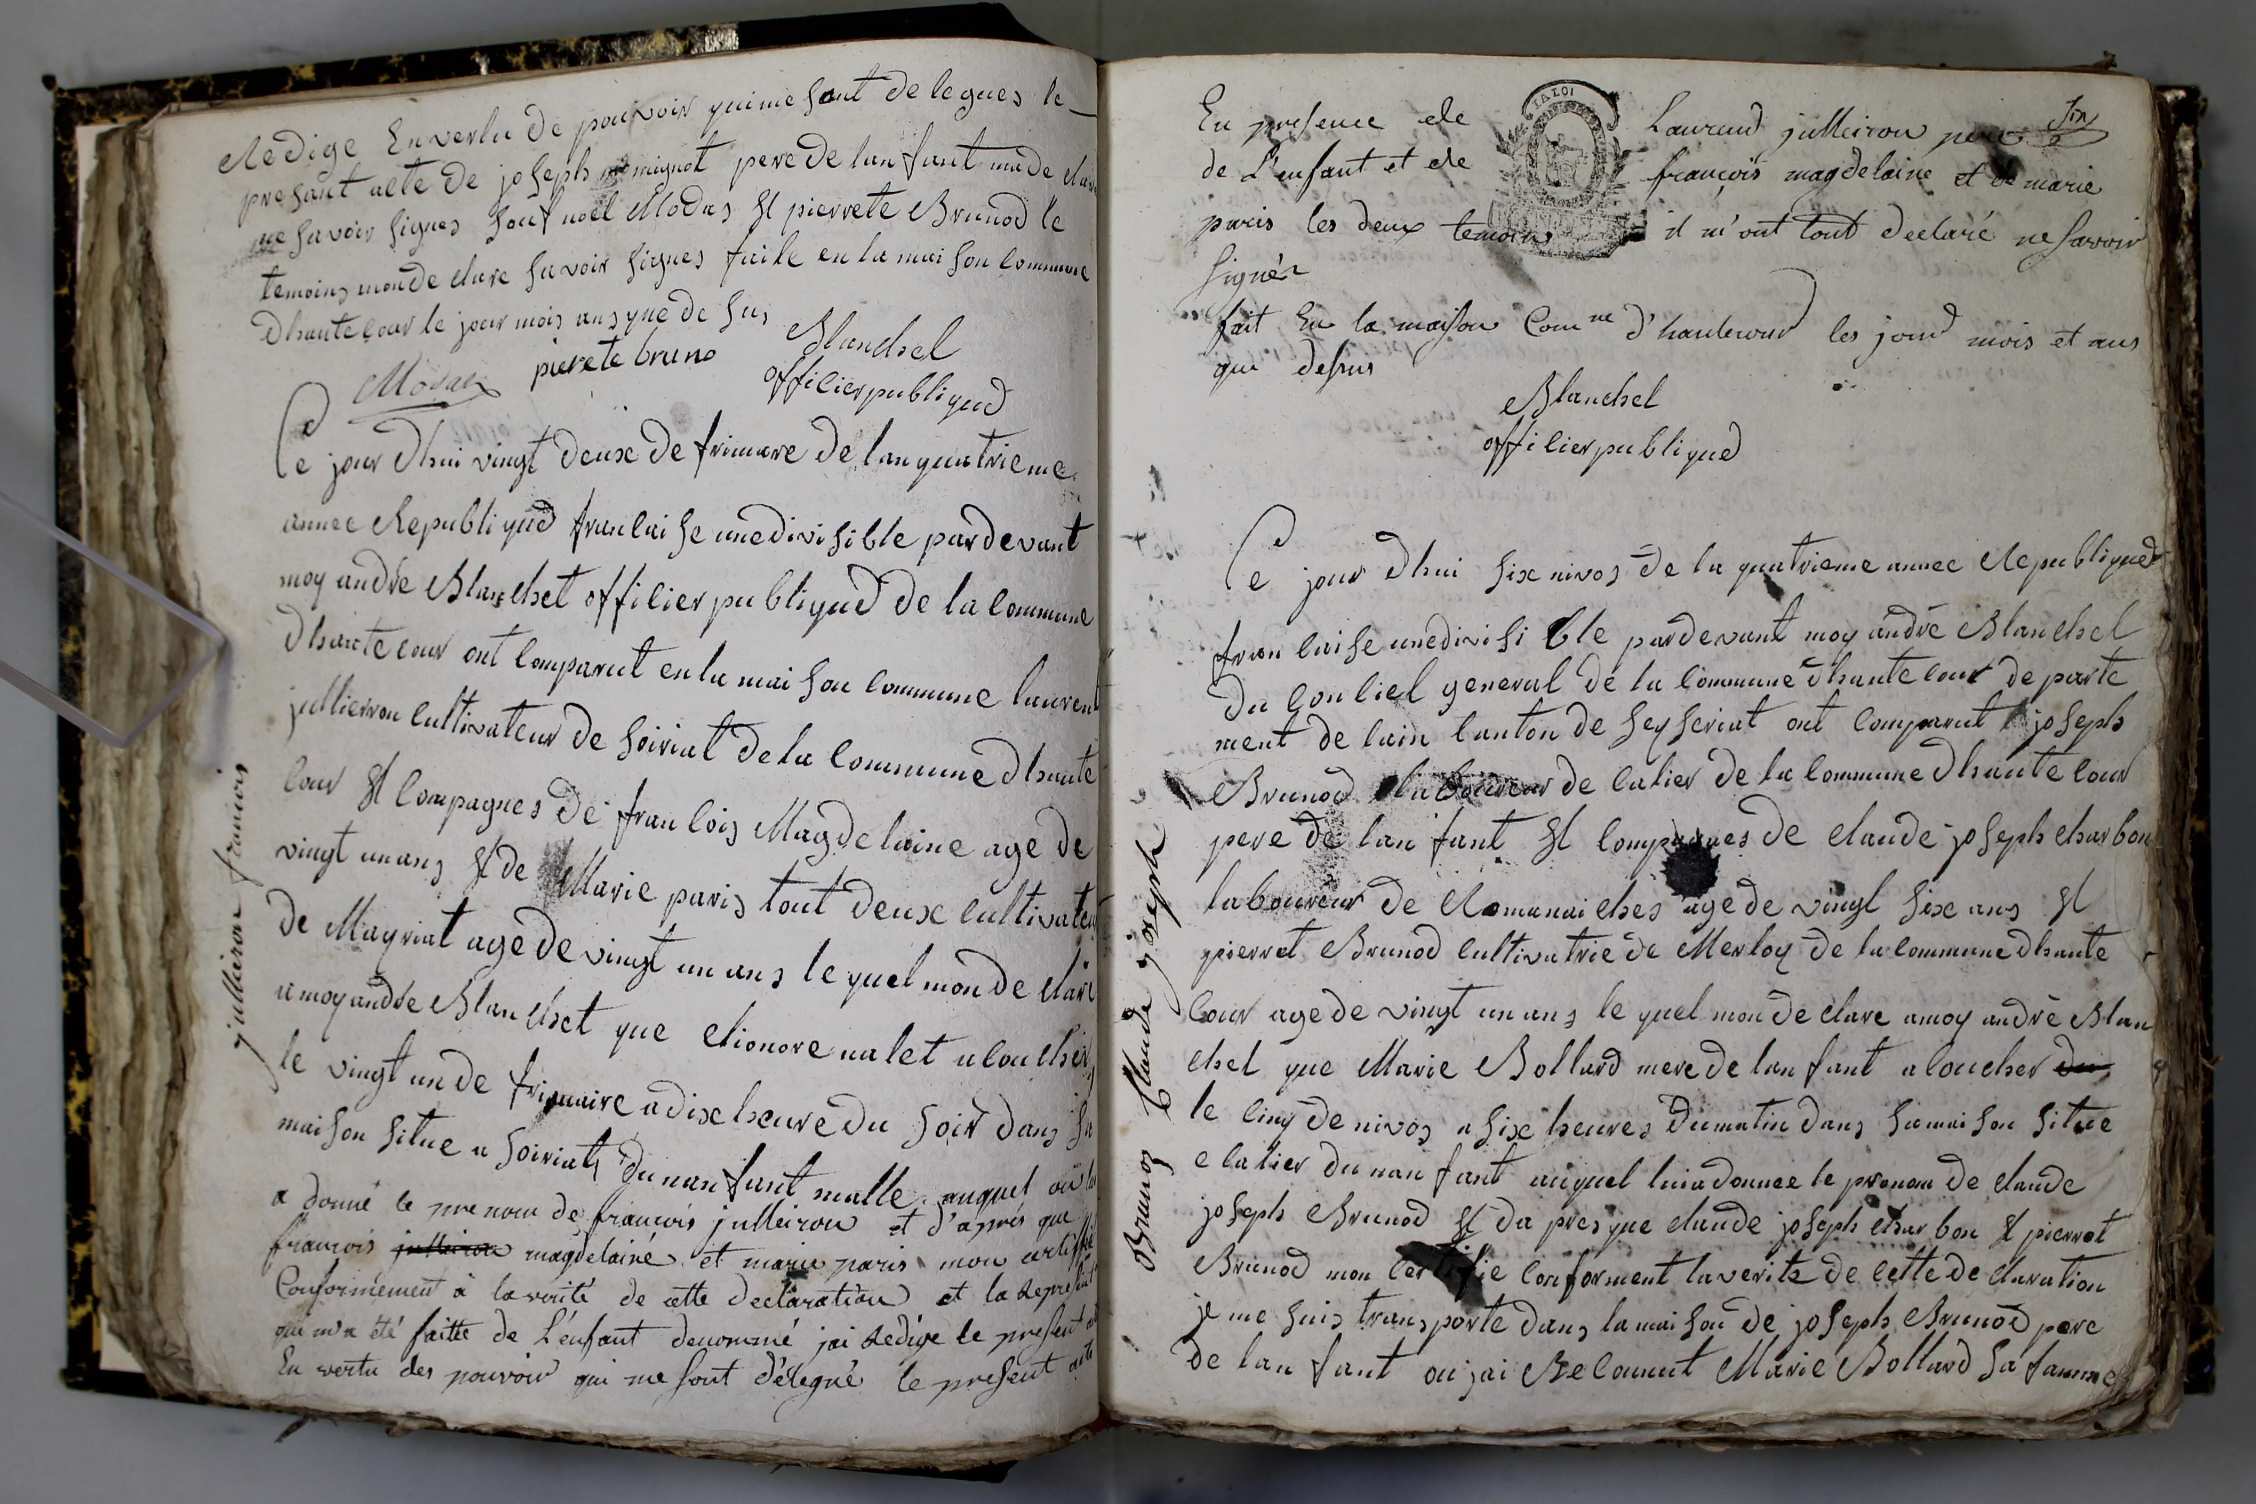 Redige En vertu de pouvoir qui me sont delegues le
presant acte de joseph mignot pere de lanfant ma declare
ne savoir signes souf noel Modas et pierrete Brunod le
temoins mon declare savoir signes faite en la maison commune
dhautecour le jour mois ans que de sus
Modas pierete bruno Blanchet
officier publiqued
Ce jour dhui vingt deux de frimare de lan quatrieme
annee Republiqued francaise unedivisible pardevant
moy andré Blanchet officier publiqued de la commune
dhautecour ont comparut en la maison commune laurent
jullierron cultivateur de soiriat de la commune dhaute
cour et compagnes de francois Magdelaine age de
vingt un ans et de Marie paris tout deux cultivateur
de Mayriat age de vingt un ans le quel mon declare
a moy andré Blanchet que elionore nalet a coucher
le vingt un de frimaire a dix heure du soir dans sa
maison situe a soiriat, dunanfant malle auquel
a donné le prenom de françois julleiron et d'aprés que
françois julleiron magdelainé et marie paris mon certiffié
Conformement à la verité de cette declaration et la
qui m'a été faitte de L'enfant denommé jai redige le present
En vertu des pouvoir qui me sont délegué le present acte
julliairon francois
En presence de Laurend julleiron pere
de L'enfant et de françois magdelaine et de marie
paris les deux temoin il m'ont tout declaré ne savoir
signér
fait En la maison Comne d'hautecour les jour mois et ans
que dessus
Blanchet
officier publiqued
Ce jour dhui six nivos de la quatrieme annee Republiqued
francaise unedivisible pardevant moy andré Blanchet
du conciel general de la commune dhautecour departe
ment de lain canton de seyseriat ont comparut joseph
Brunod laboureur de catier de la commune dhautecour
pere de lanfant et compagnes de claude joseph charbon
laboureur de Romanaiches age de vingt six ans et
pierret Brunod cultivatrie de Merloy de la commune dhaute
cour age de vingt un ans le quel mon declare a moy andré Blan
chet que Marie Bollard mere de lanfant a coucher du
le cinq de nivos a six heures du matin dans sa maison situe
e catier dunanfant auquel lui a donnee le prenom de claude
joseph Brunod et da pres que claude joseph charbon et pierret
Brunod mon certifie conforment la verite de cette declaration
je me suis transporte dans la maison de joseph Brunod pere
de lanfant ou jai Reconnut Marie Bollard sa famme
Brunoz Claude joseph